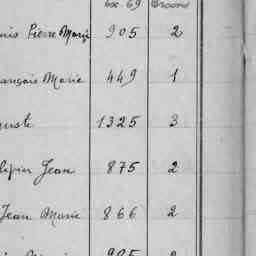 69
uis Pierre Marie 905 2
ançois Marie 449 1
uste 1325 3
Jean 875 2
Jean Marie 866 2